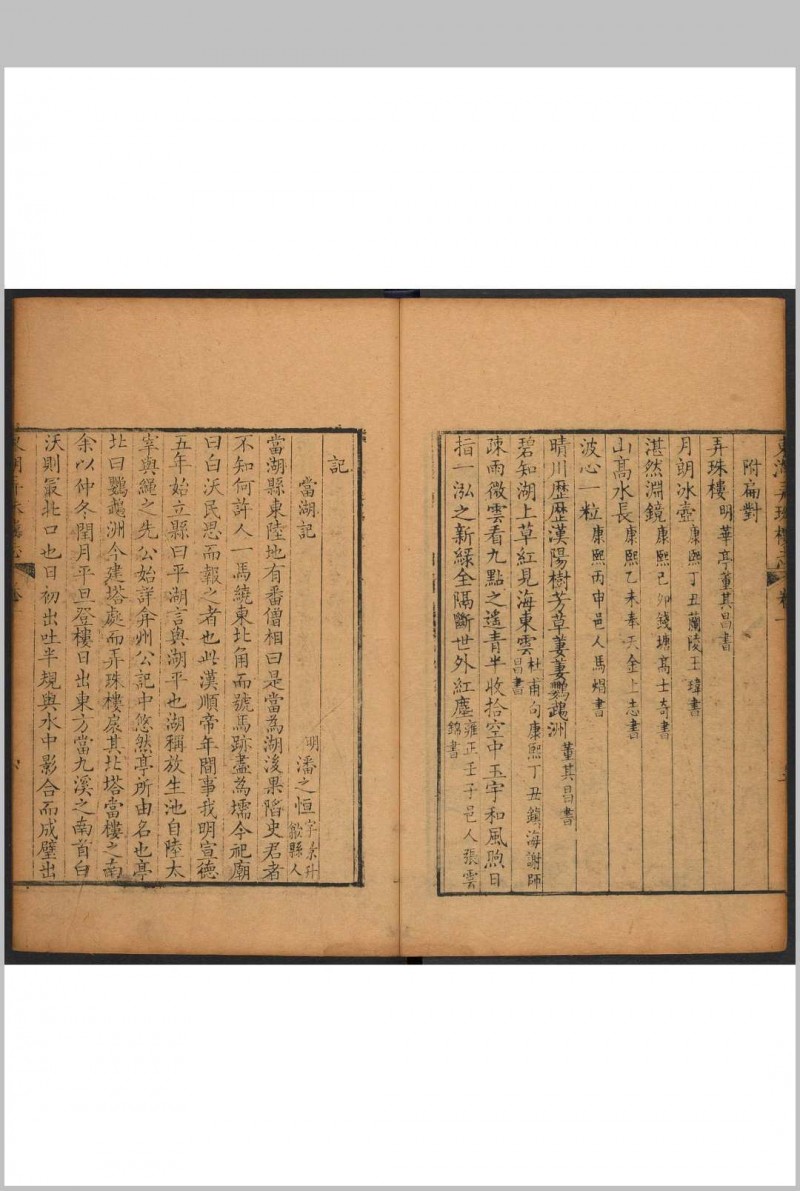 附扁對
弄珠樓 明華亭董其昌書
月朗冰壺 康熙丁丑蘭陵王瑋書
湛然淵鏡 康熙己卯錢塘高士奇書
山高水長 康熙乙未奉天金上志書
波心一粒 康熙丙申邑人馬焻書
晴川歷歷漢陽樹芳草萋萋鸚鵡洲 董其昌書
碧知湖上草紅見海東雲 杜甫句康熙丁丑鎮海謝師昌書
疎雨微雲看九點之遙青半收拾空中玉宇和風煦日
指一泓之新綠全隔斷世外紅塵 雍正壬子邑人張雲錦書
記
當湖記
明潘之恒 字景升歙縣人
當湖縣東陸地有番僧相曰是當為湖後果陷史君者
不知何許人一馬繞東北角而號馬跡盡為壖今祀廟
曰白沃民思而報之者也此漢順帝年間事我明宣德
五年始立縣曰平湖言與湖平也湖稱放生池自陸太
宰與繩之先公始詳弇州公記中悠然亭所由名也亭
北曰鸚鵡洲今建塔處而弄珠樓扆其北塔當樓之南
余以仲冬閏月平旦登樓日出東方當九溪之南首白
沃則最北口也日初出吐半規與水中影合而成璧出